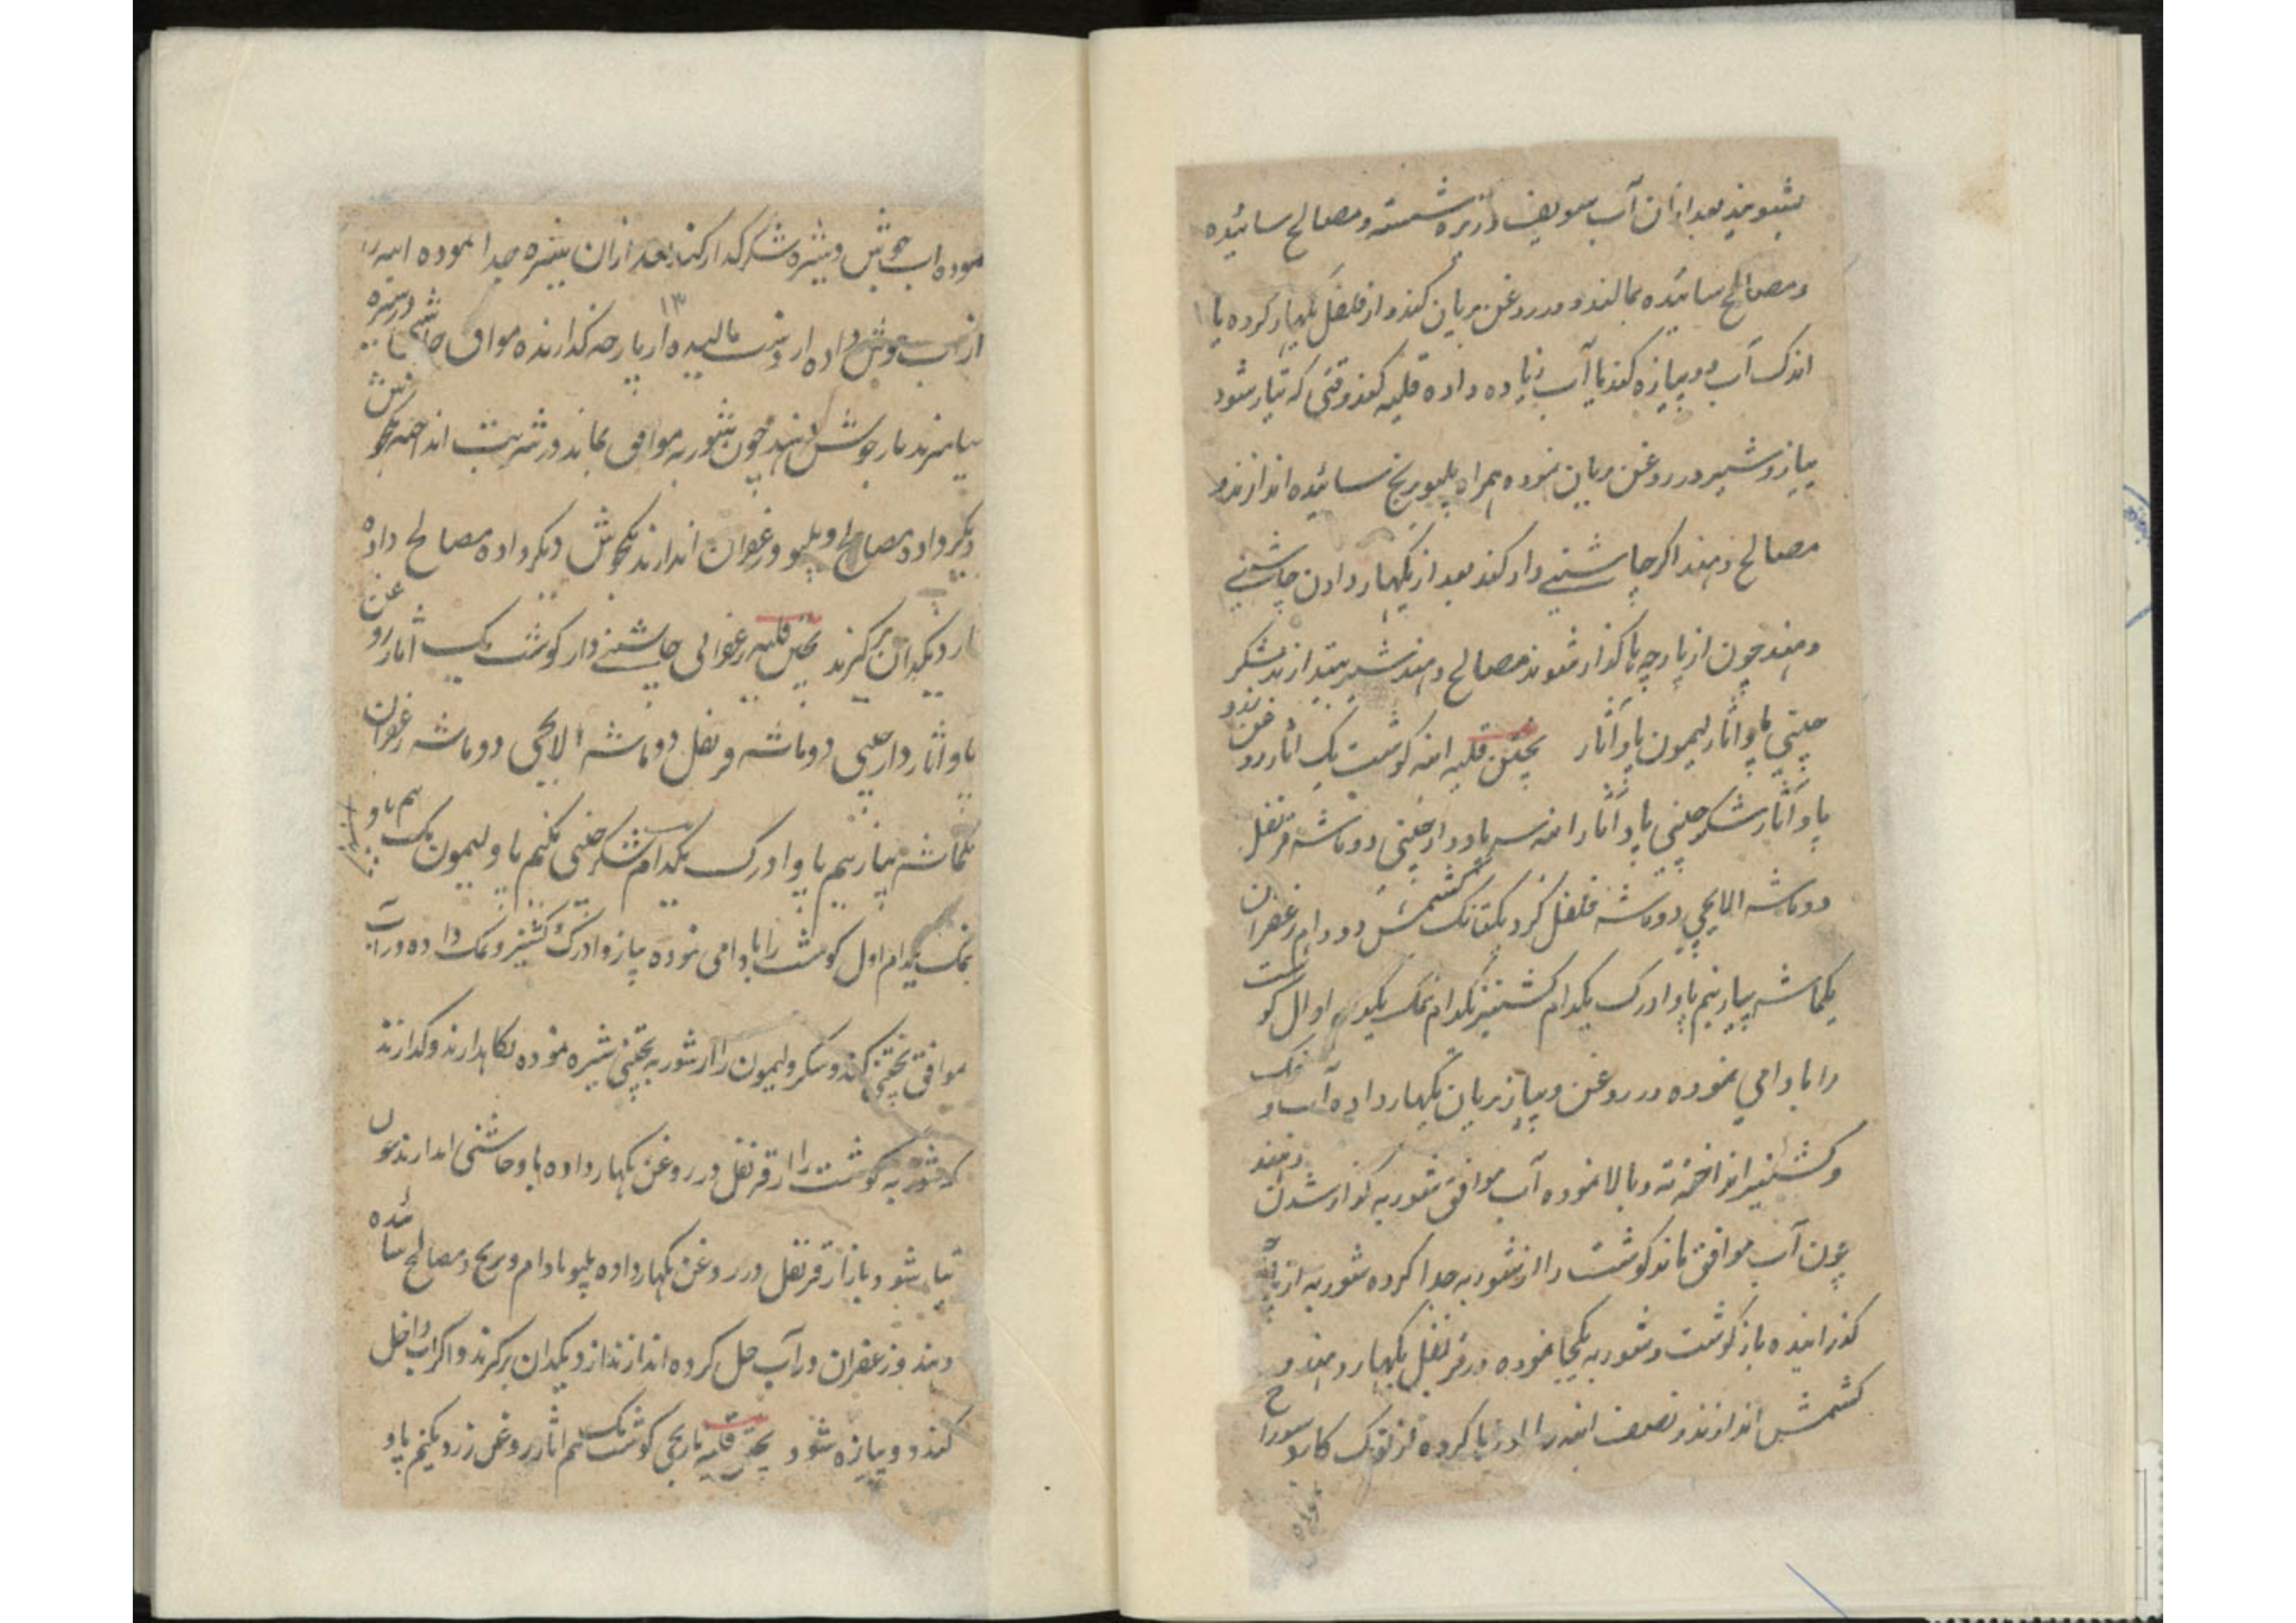 بشویند بعد ازان آب سویف زیره شسته و مصالح سائیده
و مصالح سائیده بمالند و در روغن بریان کنند و از فلفل بگهار کرده با
اندک آب دوپیازه کنند یا آب زیاده داده قلیه کنند وقتی که تیار شود
پیاز و شیر در روغن بریان نموده همراه پلیو برنج سائیده اندازند و
مصالح دهند اگر چاشنی دار کنند بعد از بگهار دادن چاشنی
دهند چون از پارچه با گذار شوند مصالح دهند شکر
چینی پاو آثار لیمون پاو آثار پختن قلیه انبه گوشت یک آثار روغن زرد
پاو آثار شکر چینی پاو آثار انبه سه پاو دارچینی دو ماشه قرنفل
دو ماشه الایچی دو ماشه فلفل گرد یکتانک کشمش دو دام زعفران
یکماشه پیاز نیم پاو ادرک یکدام کشنیز یکدام نمک یکدام اول گوشت
را بادامی نموده در روغن و پیاز بریان بگهار داده آب و نمک
و کشنیز انداخته ته و بالا نموده آب موافق شوربه گذار شدن دهند
چون آب موافق ماند گوشت را از شوربه جدا کرده شوربه از
گذرانیده باز گوشت و شوربه یکجا نموده در قرنفل بگهار دهند و
کشمش اندازند و نصف انبه را کرده از نوک کارد سوراخ
نموده آب جوش و شیره شکر کنند بعد ازان شیره جدا نموده انبه را
از داده از مالیده از پارچه گذارنده موافق چاشنی در شیره
بیامیزند باز جوش دهند چون شوربه موافق بماند در شربت انداخته یکجوش
دیگر داده مصالح و پلیو و زعفران اندازند یکجوش دیگر داده مصالح داده
از دیگدان برگیرند پختن قلیه زعفرانی چاشنی دار گوشت یک آثار روغن
پاو آثار دارچینی دو ماشه قرنفل دو ماشه الایچی دو ماشه زعفران
یکماشه پیاز نیم پاو ادرک یکدام شکر چینی یکنیم پاو لیمون یک نیم پاو
نمک یکدام اول گوشت را بادامی نموده پیاز و ادرک و کشنیز و نمک داده در آب
موافق پختنی کنند و شکر و لیمون را از شوربه پختنی شیره نموده نگاهدارند و گذارند
که شوربه گوشت را از قرنفل در روغن بگهار داده با چاشنی اندازند چون
تیار شود باز از قرنفل در روغن بگهار داده پلیو بادام و برنج و مصالح سائیده
دهند و زعفران در آب حل کرده اندازند از دیگدان برگیرند و اگر آب داخل
کنند دوپیازه شود پختن قلیه نارنجی گوشت یک نیم آثار روغن زرد یکنیم پاو